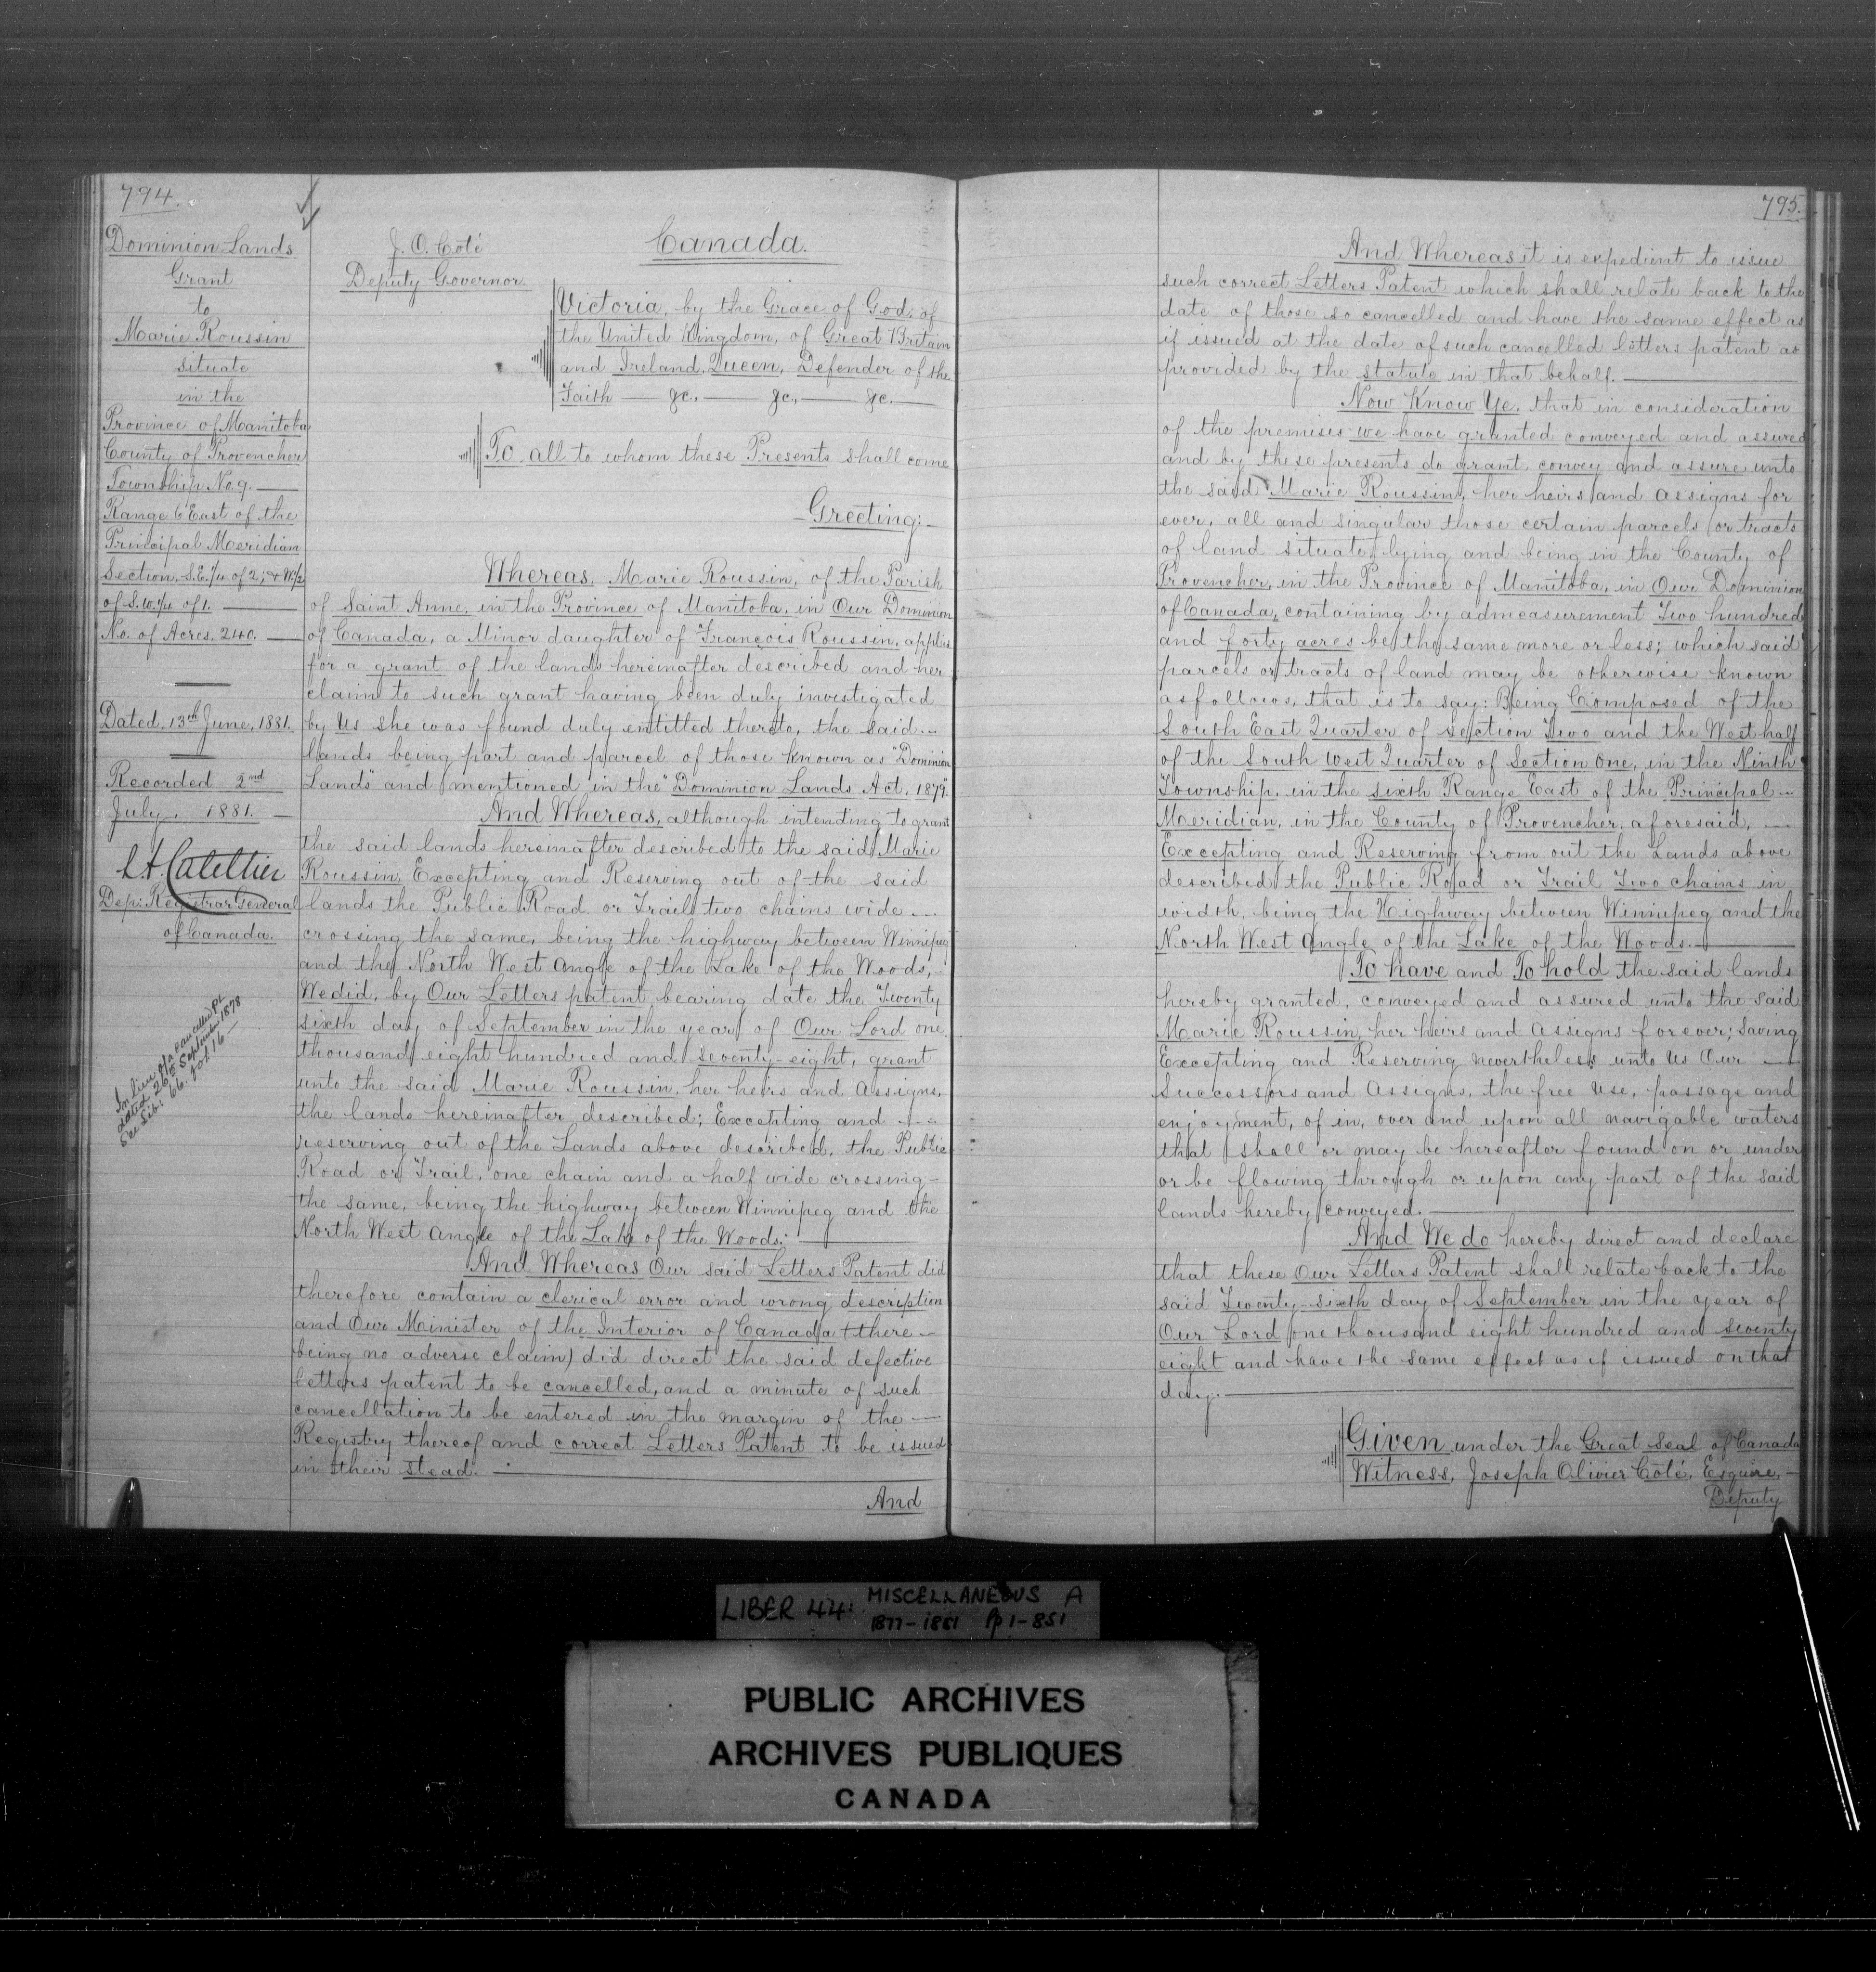 794.
Dominion Lands
Grant
to
Marie Roussin
situate
in the
Province of Manitoba
County of Provencher
Township No. 9.
Range 6 East of the
Principal Meridian
Section, S.E. 1/4 of 2; & W 1/2
of S.W. 1/4 of 1.
No. of Acres. 240.
Dated, 13th June, 1881.
Recorded 2nd
July, 1881.
L. A. Catellier
Dep: Registrar General
of Canada.
In lieu of a cancelled Pt.
dated 26th September 1878
See Lib: 66. fol. 16
J. O. Coté
Deputy Governor
Canada.
Victoria, by the Grace of God, of
the United Kingdom, of Great Britain
and Ireland, Queen, Defender of the
Faith — &c, — &c, — &c. —
To all to whom these Presents shall come
— Greeting: —
Whereas, Marie Roussin, of the Parish
of Saint Anne, in the Province of Manitoba, in Our Dominion
of Canada, a Minor daughter of François Roussin, applied
for a grant of the lands hereinafter described and her
claim to such grant having been duly investigated
by Us she was found duly entitled thereto, the said
lands being part and parcel of those known as "Dominion
Lands" and mentioned in the "Dominion Lands Act, 1879".
And Whereas, although intending to grant
the said lands hereinafter described to the said Marie
Roussin, Excepting and Reserving out of the said
lands the Public Road or Trail two chains wide
crossing the same, being the highway between Winnipeg
and the North West Angle of the Lake of the Woods,
We did, by Our Letters patent bearing date the Twenty
sixth day of September in the year of Our Lord one
thousand eight hundred and seventy-eight, grant
unto the said Marie Roussin, her heirs and Assigns,
the lands hereinafter described; Excepting and
reserving out of the Lands above described, the Public
Road or Trail, one chain and a half wide crossing
the same, being the highway between Winnipeg and the
North West Angle of the Lake of the Woods: —
And Whereas Our said Letters Patent did
therefore contain a clerical error and wrong description
and Our Minister of the Interior of Canada (there
being no adverse claim) did direct the said defective
letters patent to be cancelled, and a minute of such
cancellation to be entered in the margin of the —
Registry thereof and correct Letters Patent to be issued
in their stead. —
And
795.
And Whereas it is expedient to issue
such correct Letters Patent which shall relate back to the
date of those so cancelled and have the same effect as
if issued at the date of such cancelled letters patent as
provided by the statute in that behalf. —
Now Know Ye, that in consideration
of the premises we have granted conveyed and assured
and by these presents do grant, convey and assure unto
the said Marie Roussin, her heirs and assigns for
ever, all and singular those certain parcels or tracts
of land situate, lying and being in the County of
Provencher, in the Province of Manitoba, in Our Dominion
of Canada, containing by admeasurement Two hundred
and forty acres be the same more or less; which said
parcels or tracts of land may be otherwise known
as follows, that is to say: Being Composed of the
South East Quarter of section Two and the West half
of the South West Quarter of Section One, in the Ninth
Township, in the sixth Range East of the Principal
Meridian, in the County of Provencher, aforesaid, —
Excepting and Reserving from out the Lands above
described the Public Road or Trail Two chains in
width, being the Highway between Winnipeg and the
North West Angle of the Lake of the Woods. —
To have and To hold the said lands
hereby granted, conveyed and assured unto the said
Marie Roussin, her heirs and assigns forever; Saving
Excepting and Reserving nevertheless unto Us Our —
Successors and Assigns, the free use, passage and
enjoyment, of in, over and upon all navigable waters
that shall or may be hereafter found on or under
or be flowing through or upon any part of the said
lands hereby conveyed. —
And We do hereby direct and declare
that these Our Letters Patent shall relate back to the
said Twenty-sixth day of September in the year of
Our Lord one thousand eight hundred and seventy
eight and have the same effect as if issued on that
day. —
Given under the Great Seal of Canada
Witness, Joseph Olivier Coté, Esquire, —
Deputy
LIBER 44: MISCELLANEOUS A
1877-1881 Pp 1-851
PUBLIC ARCHIVES
ARCHIVES PUBLIQUES
CANADA